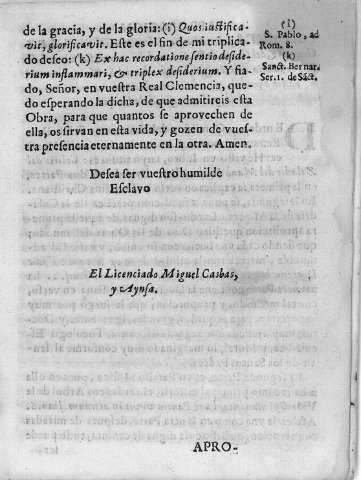 de la gracia, y de la gloria: (i) Quos iustifica-
vit, glorificavit. Este es el fin de mi triplica-
do deseo: (k) Ex hac recordatione sentio deside-
rium inflammari, & triplex desiderium. Y fia-
do, Señor, en vuestra Real Clemencia, que-
do esperando la dicha, de que admitireis esta
Obra, para que quantos se aprovechen de
ella, os sirvan en esta vida, y gozen de vues-
tra presencia eternamente en la otra. Amen.
(i)
S. Pablo, ad
Rom. 8.
(k)
Sanct. Bernar.
Ser. 1. de Sāct.
Desea ser vuestro humilde
Esclavo
El Licenciado Miguel Casbas,
y Aynsa.
APRO-